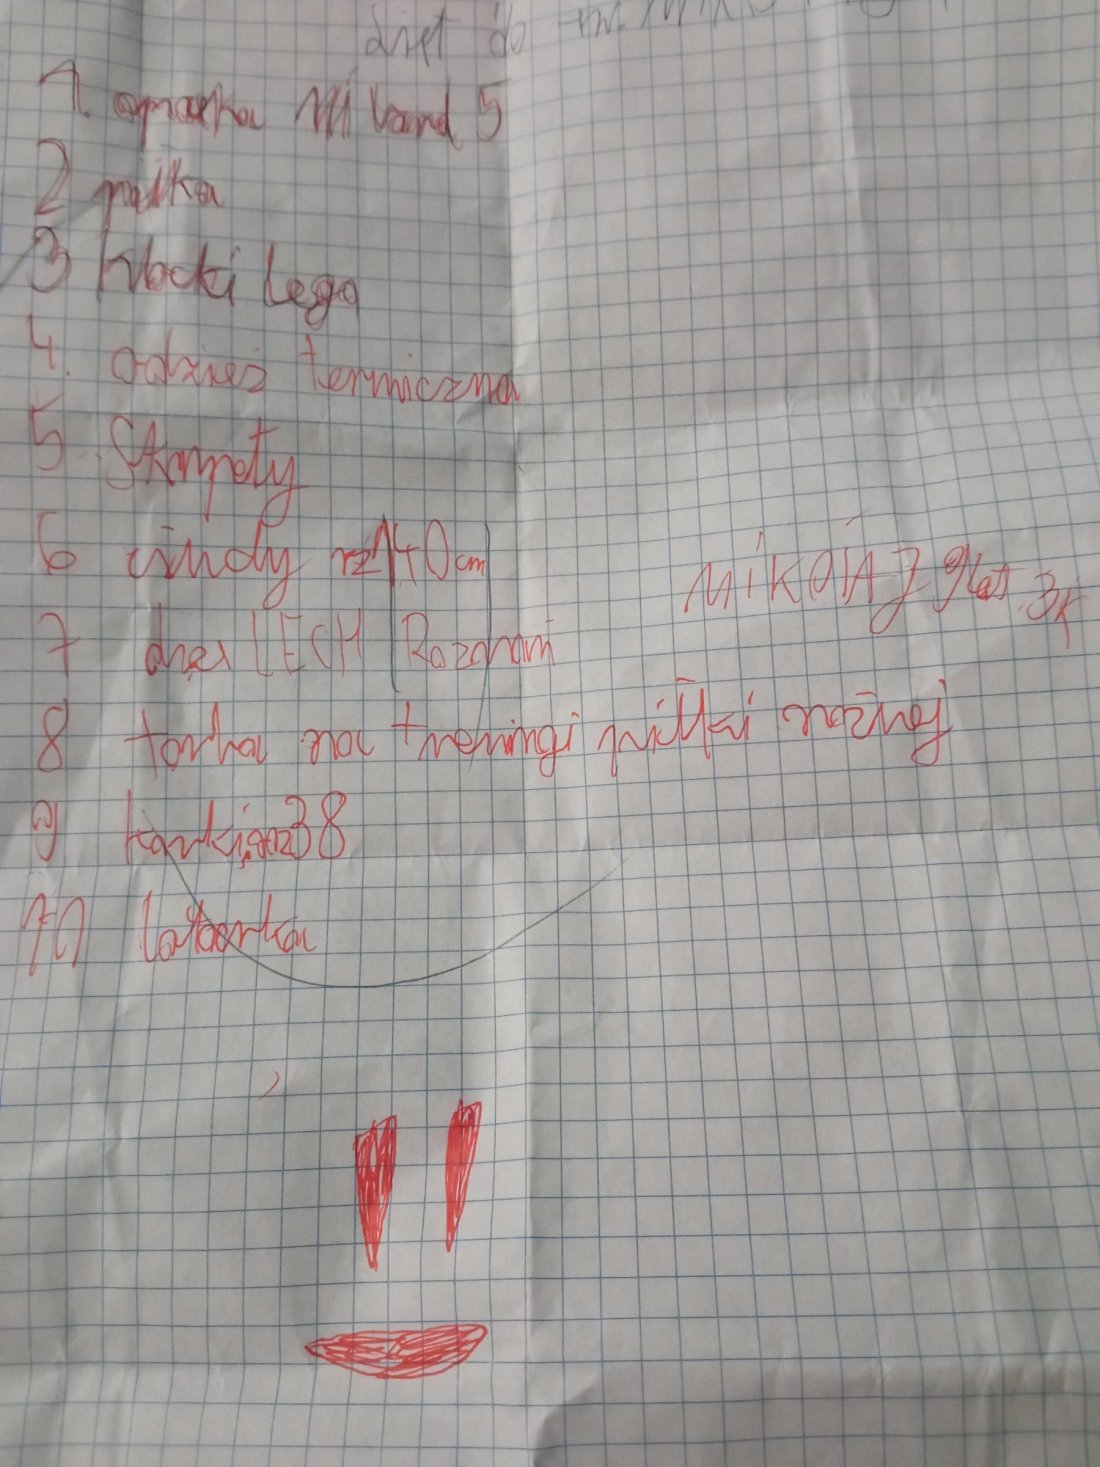 List do
1. opaska Mi band 5
2 piłka
3 klocki Lego
4. odzież termiczna
5 Skarpety
6 rz 140 cm
7 dres LECH Poznań
8 torba na treningi piłki nożnej
MIKOŁAJ 9 lat 3k
9 korki roz 38
10 latarka